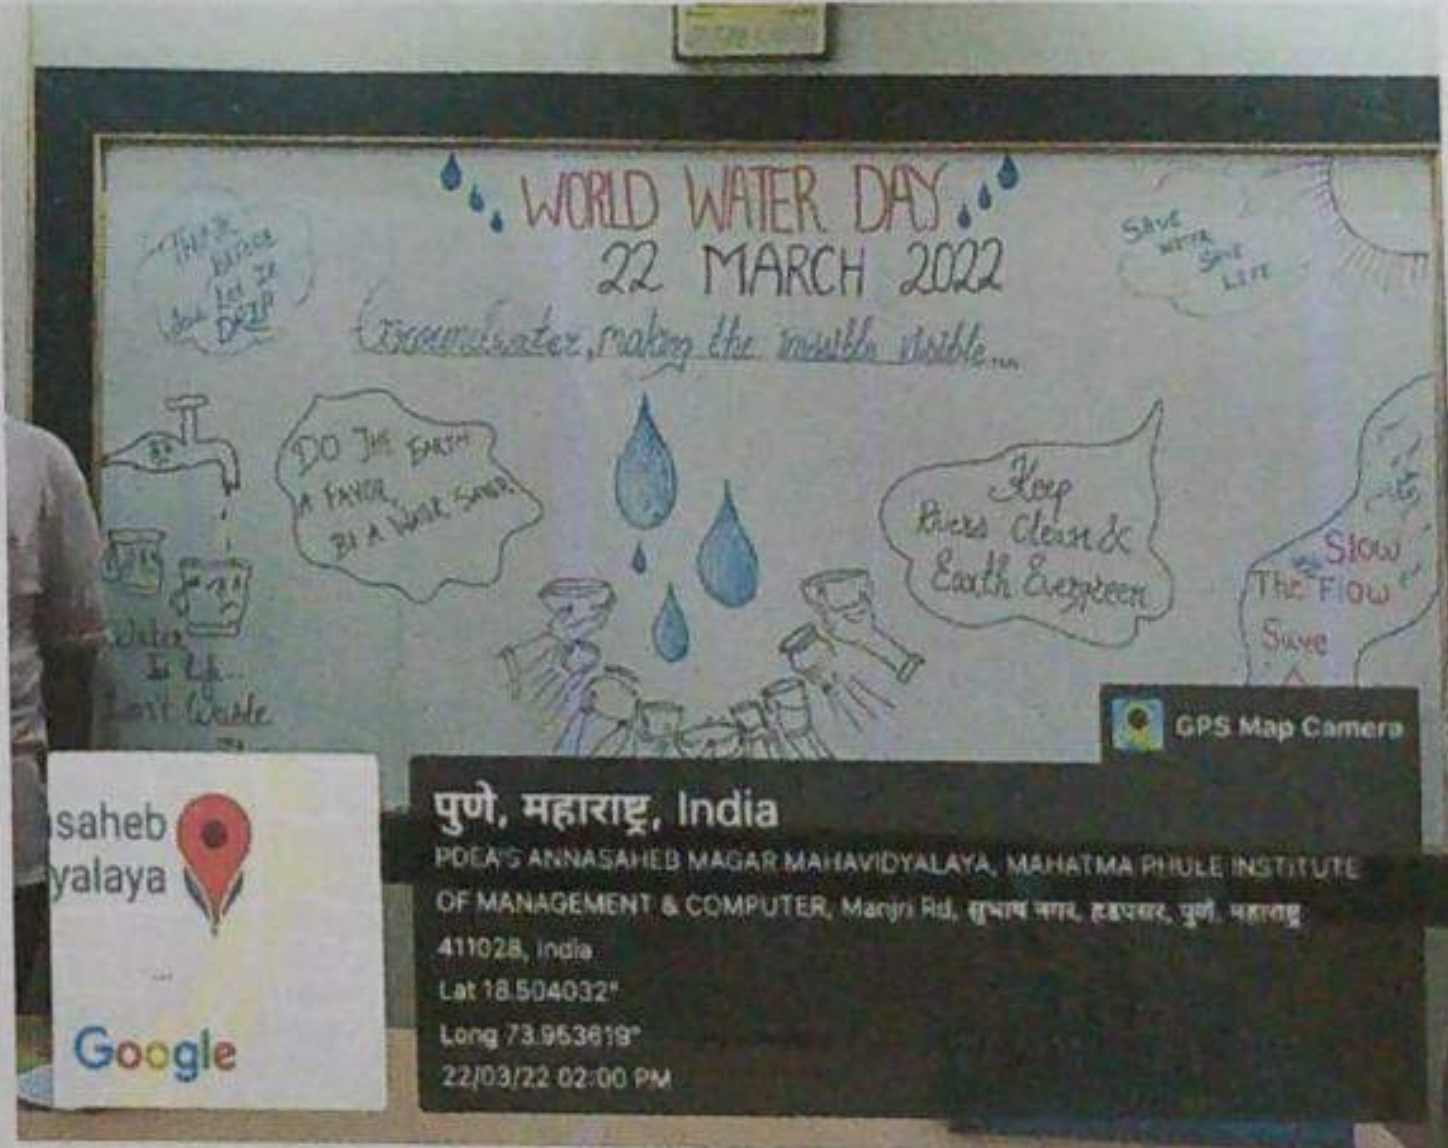 WORLD WATER DAY
22 MARCH 2022
Groundwater, making the invisible visible....
THINK
BEFORE
You Let It
DRIP
SAVE
WATER
SAVE
LIFE
DO THE EARTH
A FAVOR,
BE A WATER SAVER
Keep
Rivers Clean &
Earth Evergreen
Slow
The Flow
Save
Water
Is Life...
Don't Waste
GPS Map Camera
saheb
yalaya
Google
पुणे, महाराष्ट्र, India
PDEA'S ANNASAHEB MAGAR MAHAVIDYALAYA, MAHATMA PHULE INSTITUTE
OF MANAGEMENT & COMPUTER, Manjri Rd, सुभाष नगर, हडपसर, पुणे, महाराष्ट्र
411028, India
Lat 18.504032°
Long 73.953619°
22/03/22 02:00 PM